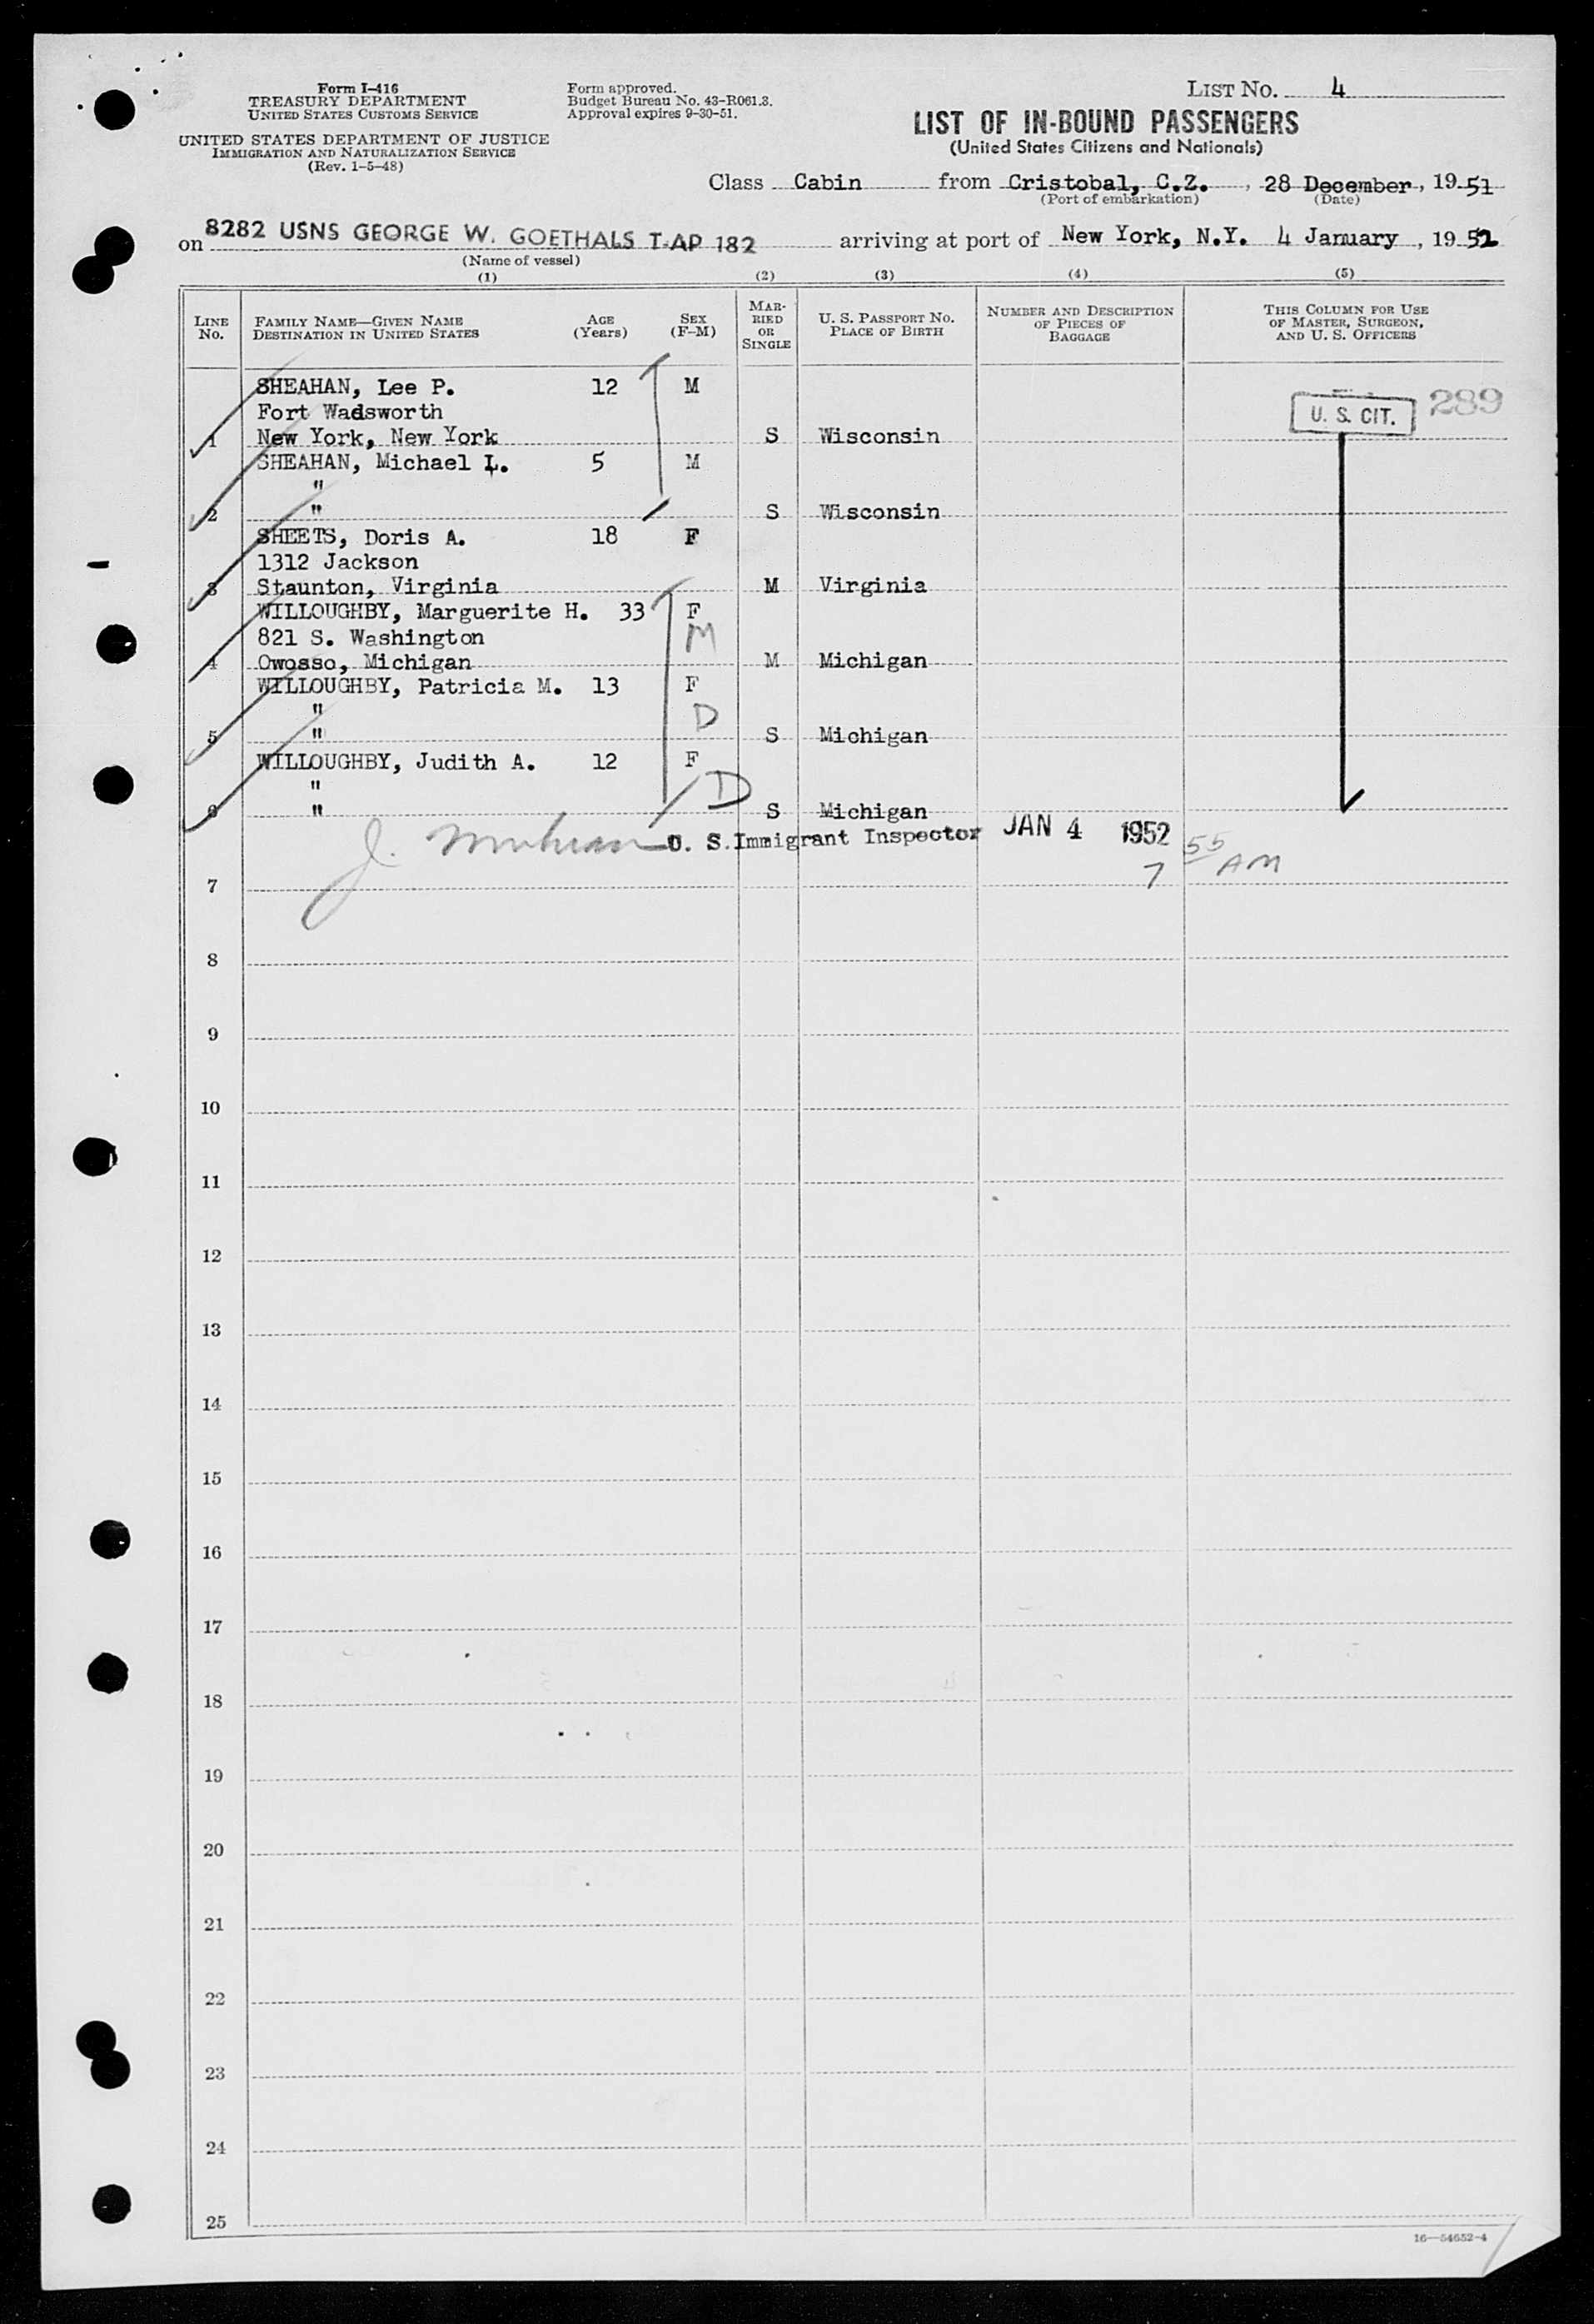 Form I-416
TREASURY DEPARTMENT
UNITED STATES CUSTOMS SERVICE
UNITED STATES DEPARTMENT OF JUSTICE
IMMIGRATION AND NATURALIZATION SERVICE
(Rev. 1-5-48)
Form approved.
Budget Bureau No. 43-R061.3.
Approval expires 9-30-51.
LIST No. 4
LIST OF IN-BOUND PASSENGERS
(United States Citizens and Nationals)
Class Cabin from Cristobal, C.Z., 28 December, 1951
(Port of embarkation) (Date)
on 8282 USNS GEORGE W. GOETHALS T-AP 182 arriving at port of New York, N.Y. 4 January, 1952
(Name of vessel)
(1) (2) (3) (4) (5)
LINE No.
FAMILY NAME—GIVEN NAME
DESTINATION IN UNITED STATES
AGE (Years)
SEX (F-M)
MARRIED OR SINGLE
U. S. PASSPORT NO.
PLACE OF BIRTH
NUMBER AND DESCRIPTION
OF PIECES OF
BAGGAGE
THIS COLUMN FOR USE
OF MASTER, SURGEON,
AND U. S. OFFICERS
SHEAHAN, Lee P. 12 M
Fort Wadsworth
1 New York, New York S Wisconsin
U. S. CIT. 289
SHEAHAN, Michael L. 5 M
"
2 " S Wisconsin
SHEETS, Doris A. 18 F
1312 Jackson
3 Staunton, Virginia M Virginia
WILLOUGHBY, Marguerite H. 33 F
821 S. Washington M
4 Owosso, Michigan M Michigan
WILLOUGHBY, Patricia M. 13 F
" D
5 " S Michigan
WILLOUGHBY, Judith A. 12 F
" D
6 " S Michigan
J. U. S. Immigrant Inspector JAN 4 1952
7 55 AM
7
8
9
10
11
12
13
14
15
16
17
18
19
20
21
22
23
24
25
16—54652-4